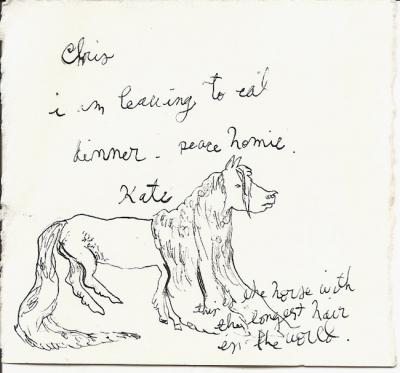 Chris
i am leaving to eat
dinner - peace homie.
Kate
this is the horse with
the longest hair
in the world.